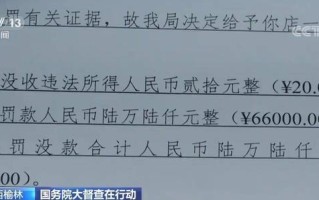 13
闻
CCTV
罚有关证据，故我局决定给予你店
没收违法所得人民币贰拾元整（¥20.0
罚款人民币陆万陆仟元整（¥66000.00
罚没款合计人民币陆万陆仟
00）。
榆林
国务院大督查在行动